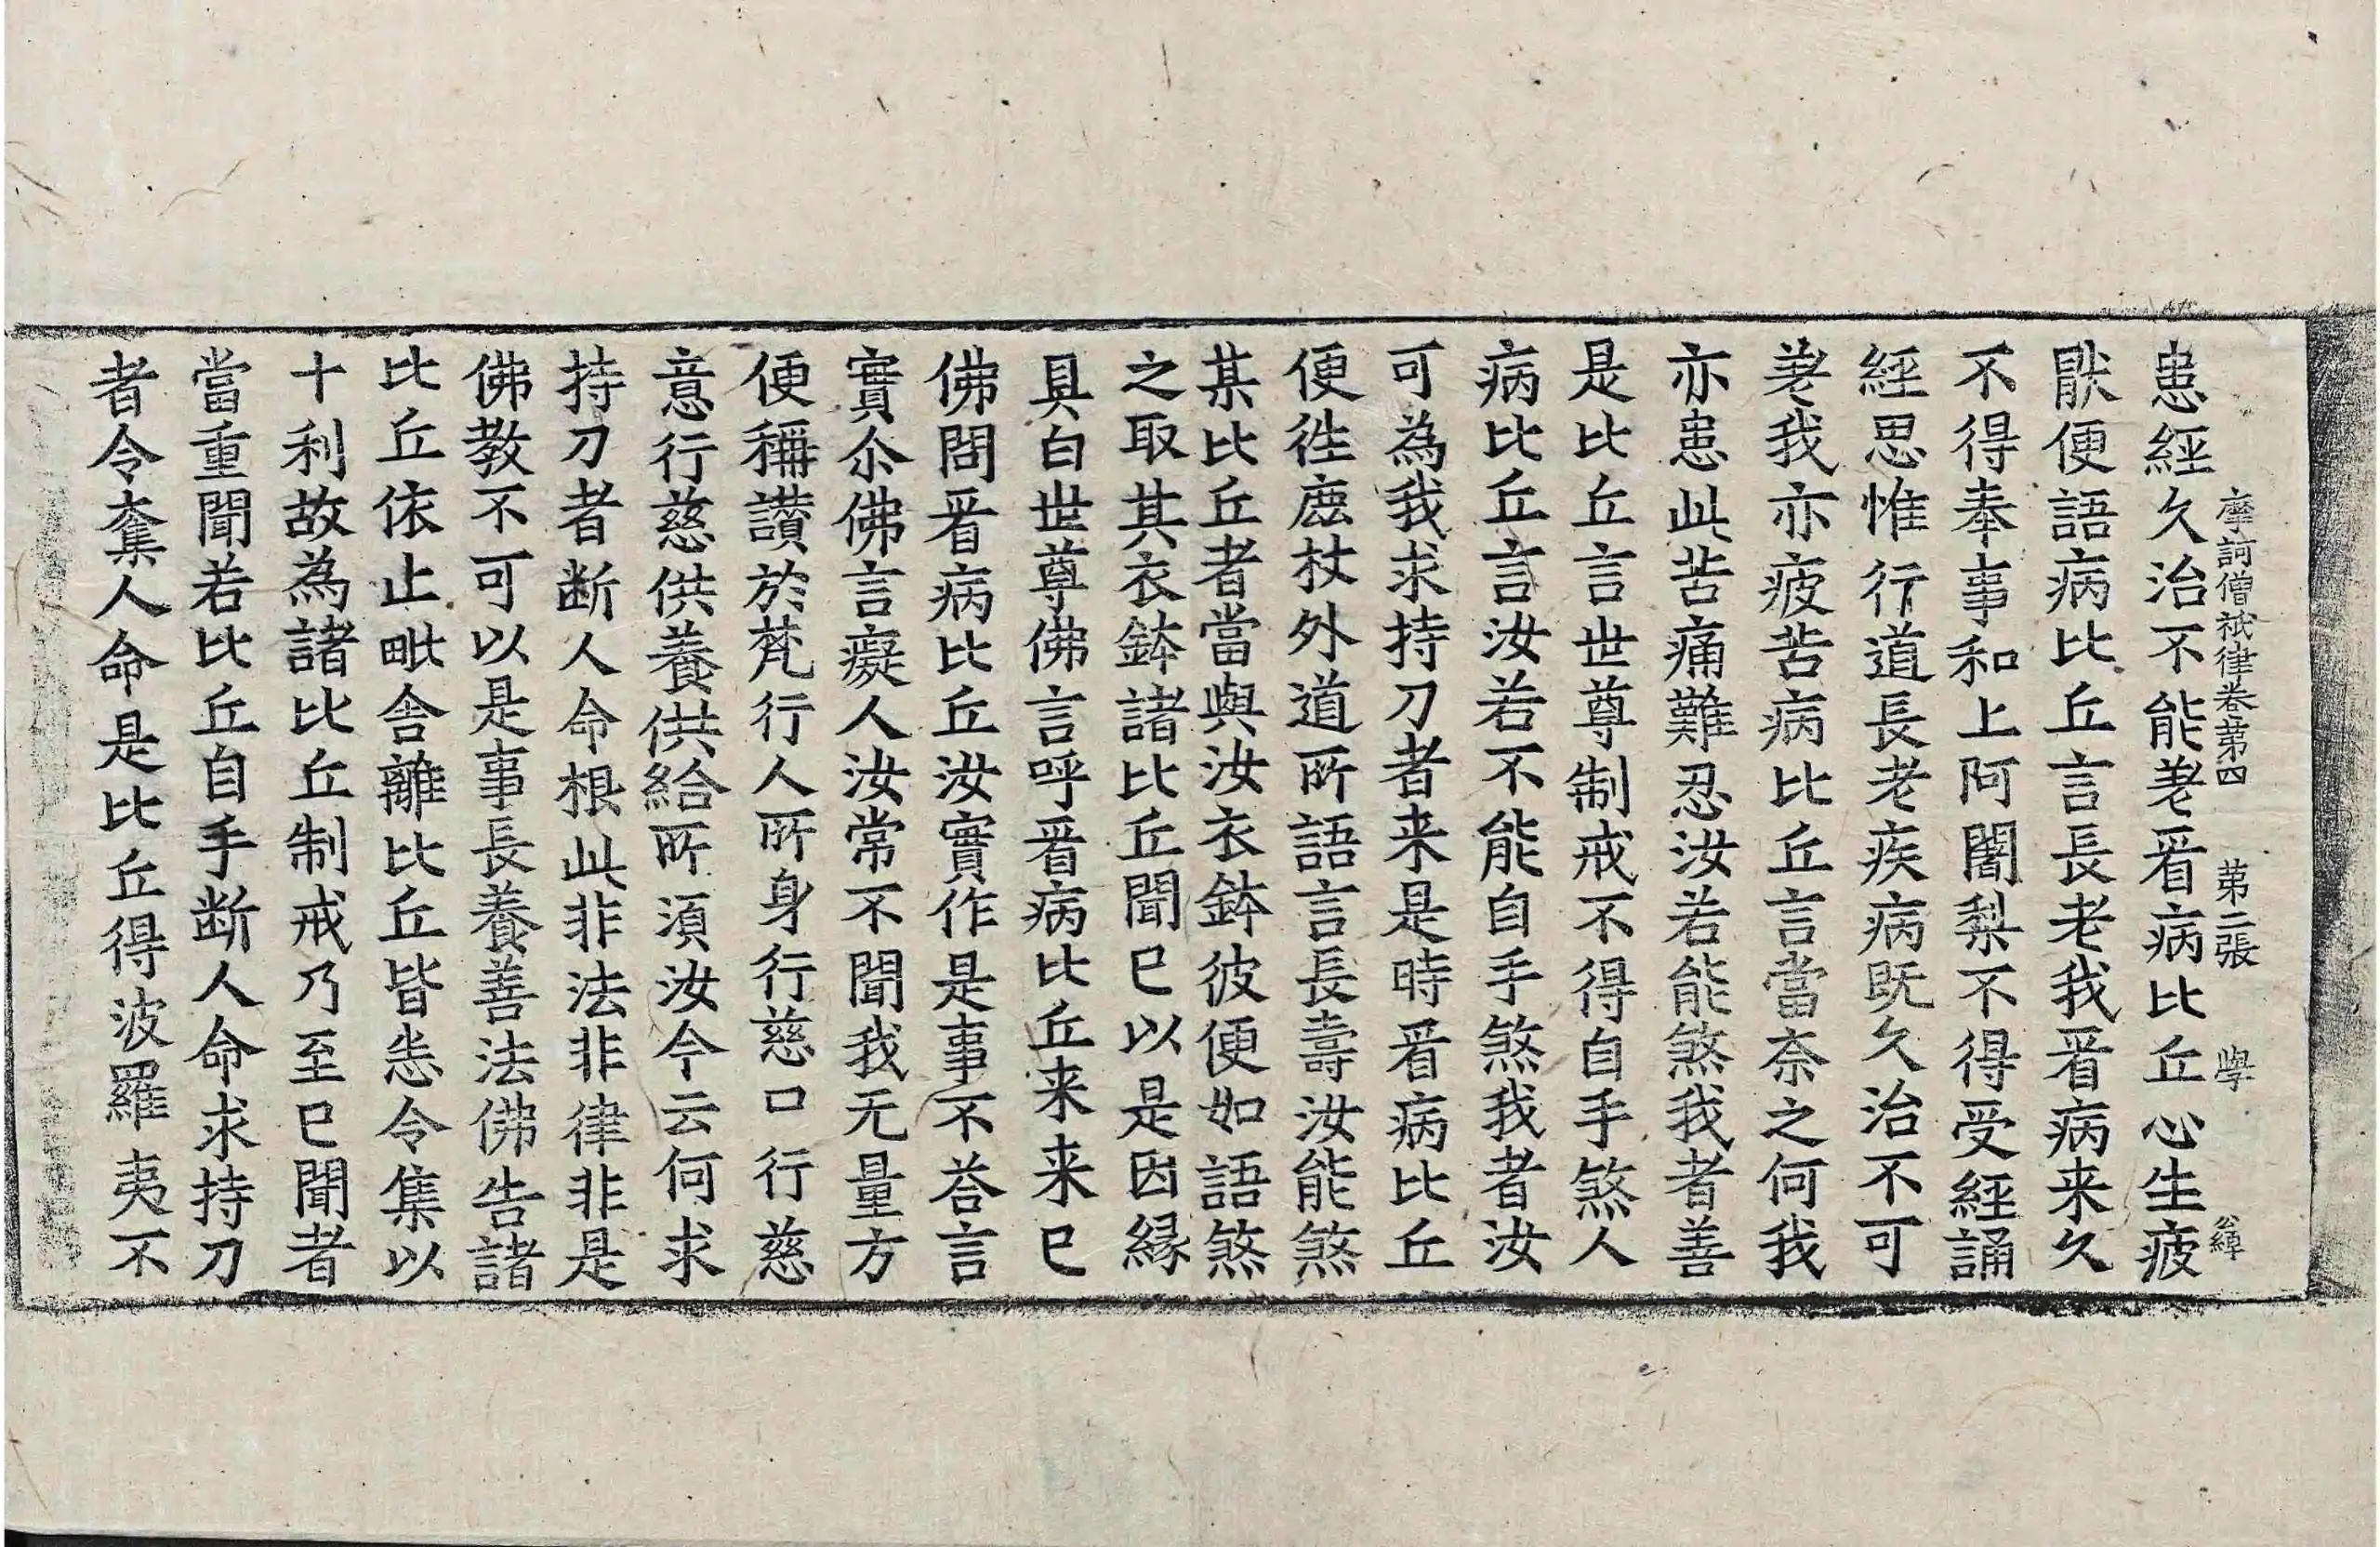 摩訶僧祇律卷苐四 苐二張 學
患經久治不能差㸔病比丘心生疲
猒便語病比丘言長老我㸔病来久
不得奉事和上阿闍梨不得受經誦
經思惟行道長老疾病既久治不可
差我亦疲苦病比丘言當奈之何我
亦患此苦痛難忍汝若能煞我者善
是比丘言世尊制戒不得自手煞人
病比丘言汝若不能自手煞我者汝
可為我求持刀者来是時㸔病比丘
便徃䴢杖外道所語言長壽汝能煞
某比丘者當與汝衣鉢彼便如語煞
之取其衣鉢諸比丘聞已以是因縁
具白世尊佛言呼㸔病比丘来来已
佛問㸔病比丘汝實作是事不荅言
實尒佛言癡人汝常不聞我无量方
便稱讃於梵行人所身行慈口行慈
意行慈供養供給所湏汝今云何求
持刀者断人命根此非法非律非是
佛教不可以是事長養善法佛告諸
比丘依止毗舎離比丘皆悉令集以
十利故為諸比丘制戒乃至已聞者
當重聞若比丘自手断人命求持刀
者令奪人命是比丘得波羅夷不